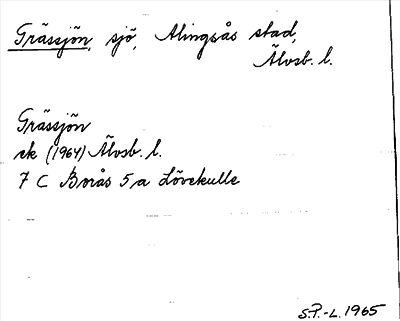 Grässjön, sjö, Alingsås stad,
Älvsb. l.
Grässjön
ek (1964) Älvsb. l.
7 C Borås 5 a Lövekulle
S.P.-L. 1965